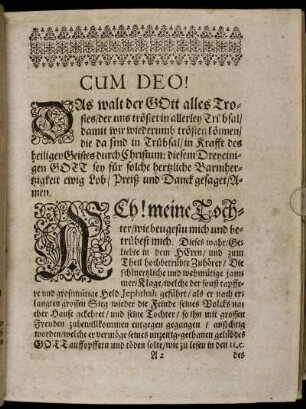 CUM DEO!
DAs walt der GOtt alles Tro-
stes/ der uns tröstet in allerley Trübsal/
damit wir wiederumb trösten können/
die da sind in Trübsal/ in Krafft des
heiligen Geistes durch Christum: diesem Dreyeini-
gen GOTT sey für solche hertzliche Barmher-
tzigkeit ewig Lob/ Preiß und Danck gesaget/ A-
men.
ACh! meine Toch-
ter/ wie beugestu mich und be-
trübest mich. Dieses wahr/ Ge-
liebte in dem HErrn/ und zum
Theil hochbetrübte Zuhörer/ Die
schmertzliche und wehmütige jam-
mer-Klage/ welche der sonst tapffe-
re und großmütige Held Jephthah geführt/ als er nach er-
langten grossen Sieg wieder die Feinde seines Volcks na-
cher Hause gekehret/ und seine Tochter/ so ihn mit grossen
Freuden zubewillkommen entgegen gegangen/ ansichtig
worden/ welche er vermöge seines unzeitig-gethanen gelübdes
GOTT auffopffern und töden solte/ wie zu lesen in den 11. c.
A 2 des